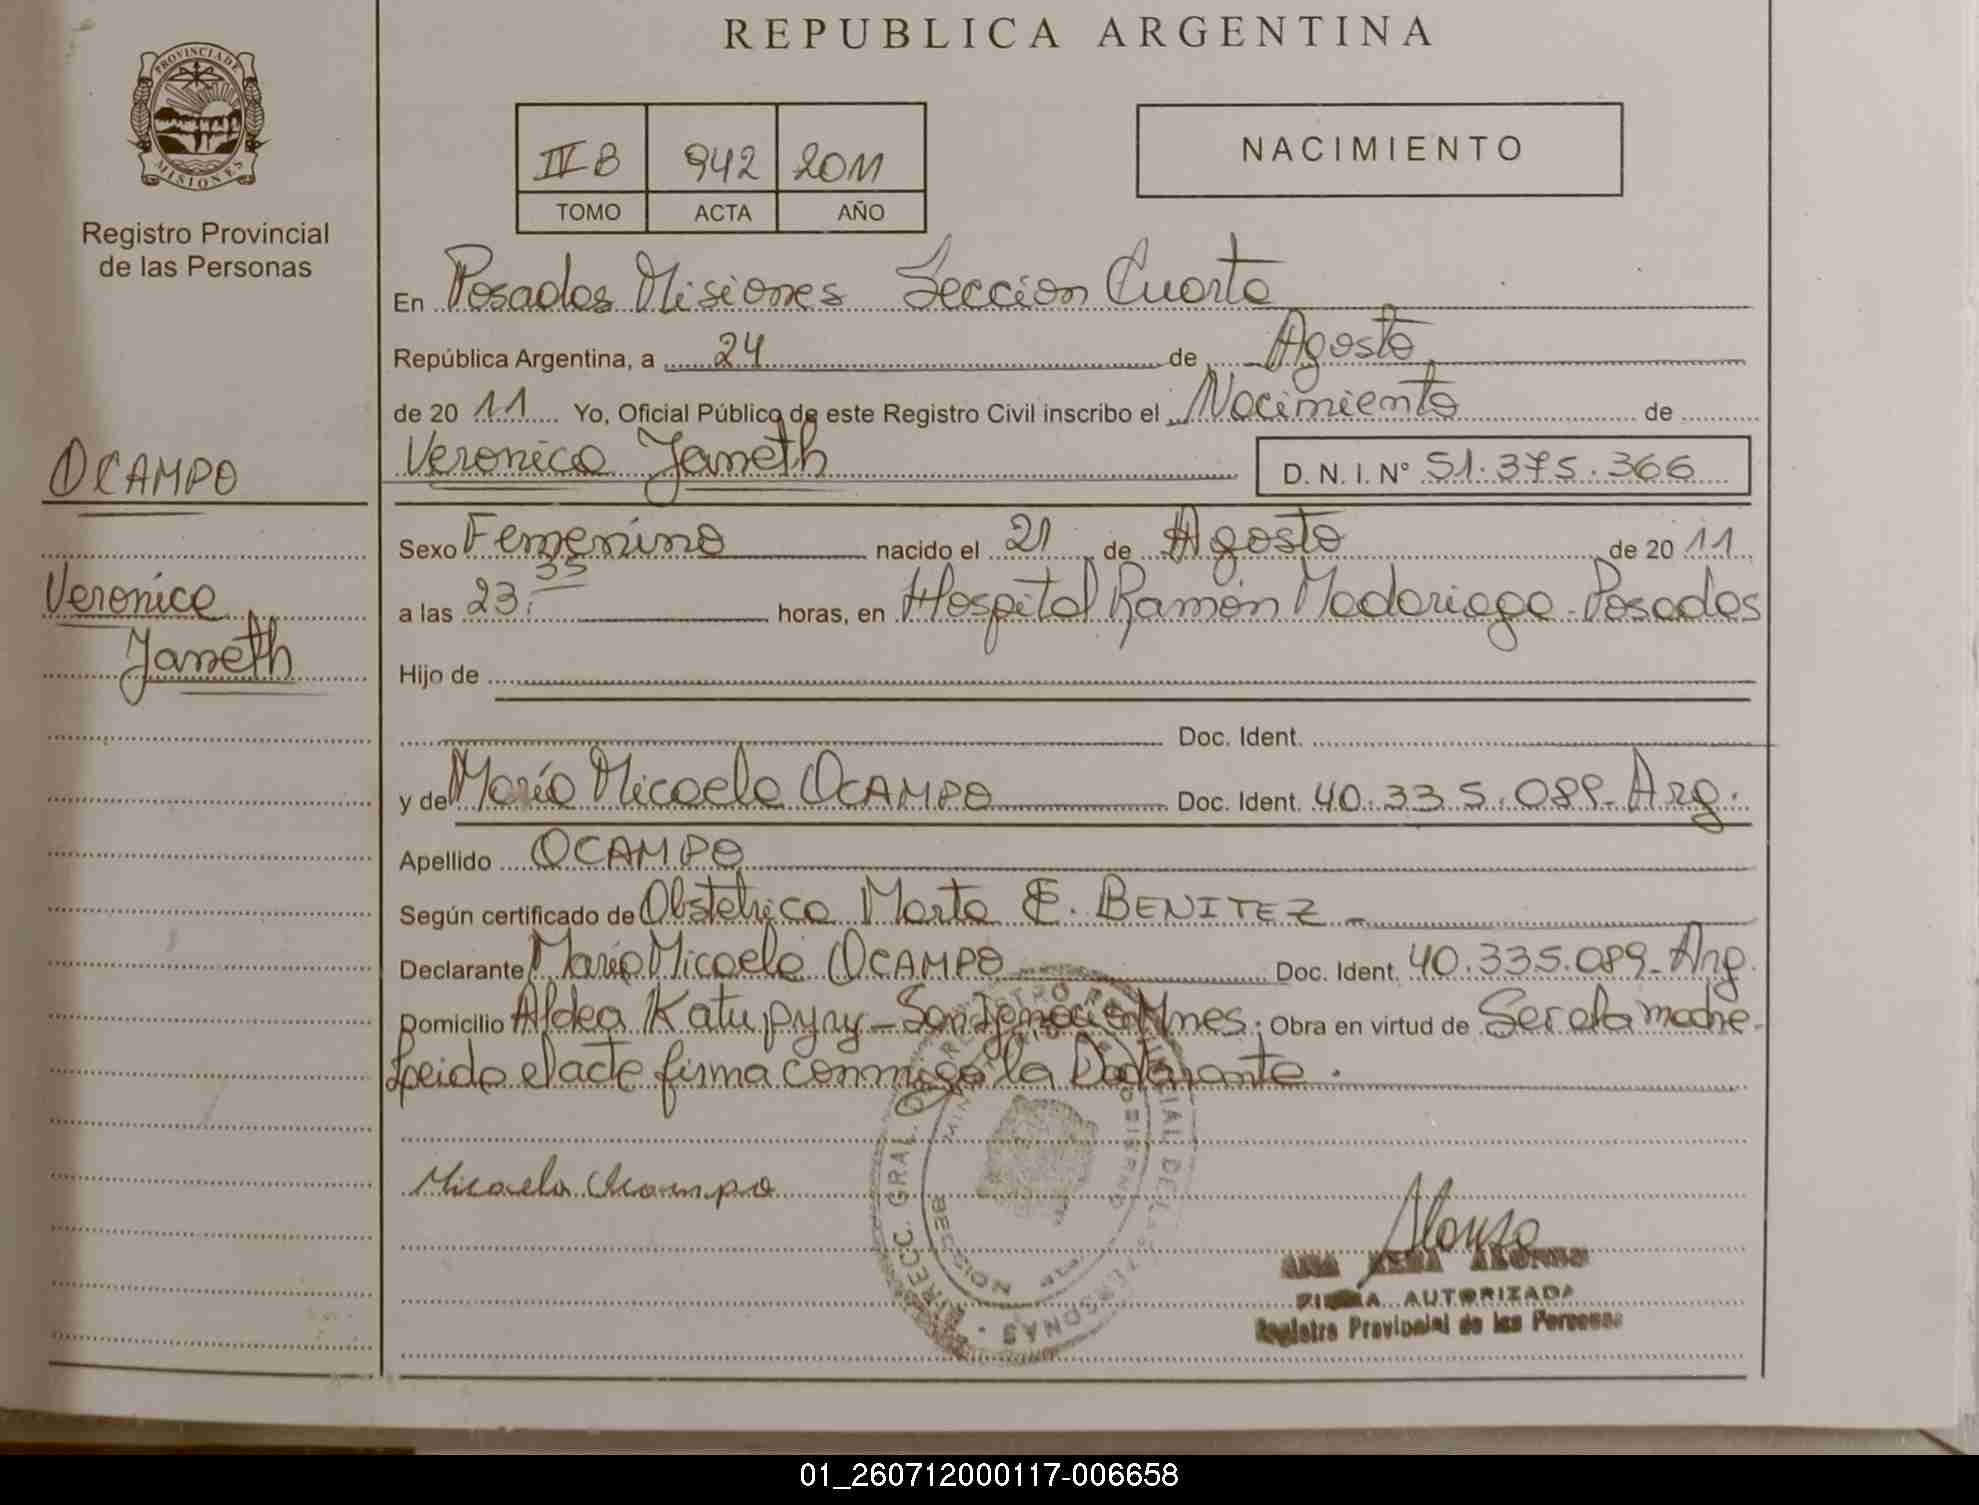 REPUBLICA ARGENTINA
PROVINCIA DE
MISIONES
Registro Provincial
de las Personas
IV B 942 2011
TOMO ACTA AÑO
NACIMIENTO
En Posadas Misiones Seccion Cuarta
República Argentina, a 24 de Agosto
de 20 11 Yo, Oficial Público de este Registro Civil inscribo el Nacimiento de
OCAMPO
Veronica Janeth
D. N. I. N° 51.375.366
Sexo Femenino nacido el 21 de Agosto de 20 11
Veronica
Janeth
a las 23:35 horas, en Hospital Ramón Madariaga - Posadas
Hijo de
Doc. Ident.
y de María Micaela OCAMPO Doc. Ident. 40.335.089 - Arg.
Apellido OCAMPO
Según certificado de Obstetrica Marta E. BENITEZ -
Declarante María Micaela OCAMPO Doc. Ident. 40.335.089 - Arg.
Domicilio Aldea Katupyry - San Ignacio Mnes. Obra en virtud de Ser ela madre -
Leido el acte firma conmigo la Declarante.
Micaela Ocampo
DIRECC. GRAL. REGISTRO PROVINCIAL DE LAS PERSONAS
Alonso
ALONSO
FIRMA AUTORIZADA
Registro Provincial de las Personas
01_260712000117-006658